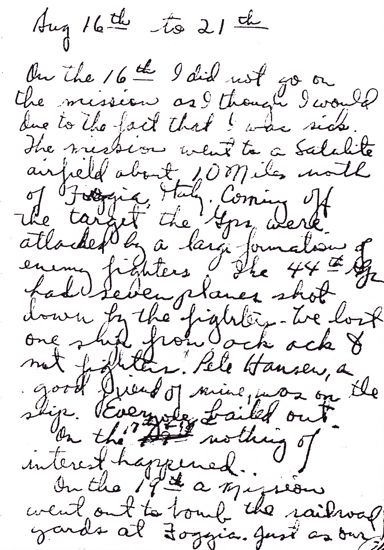 Aug 16th to 21th
On the 16th I did not go on
the mission as I though I would
due to the fact that I was sick.
The mission went to a Satalite
airfield about 10 Miles north
of Foggia, Italy. Coming off
the target the Gps were
attacked by a large formation of
enemy fighters. The 44th Gp
had seven planes shot
down by the fighters. We lost
one ship from ack ack &
not fighters. Pete Hansen, a
good friend of mine, was on the
ship. Everyone bailed out.
On the 17-18 nothing of
interest happened.
On the 19th a mission
went out to bomb the railroad
yards at Foggia. Just as our